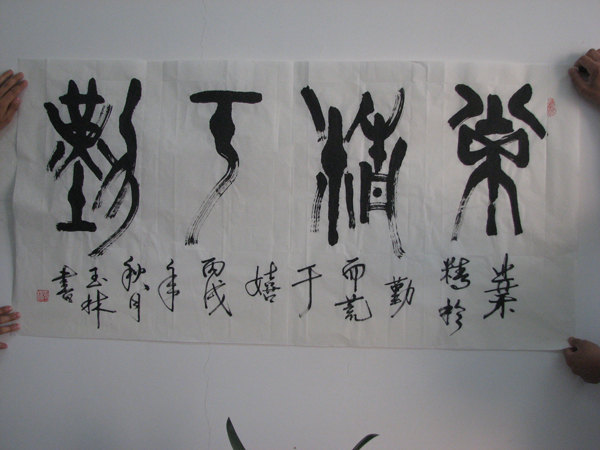 業精于勤
業
精於
勤
而荒
于
嬉
丙戌
年
秋月
玉林
書